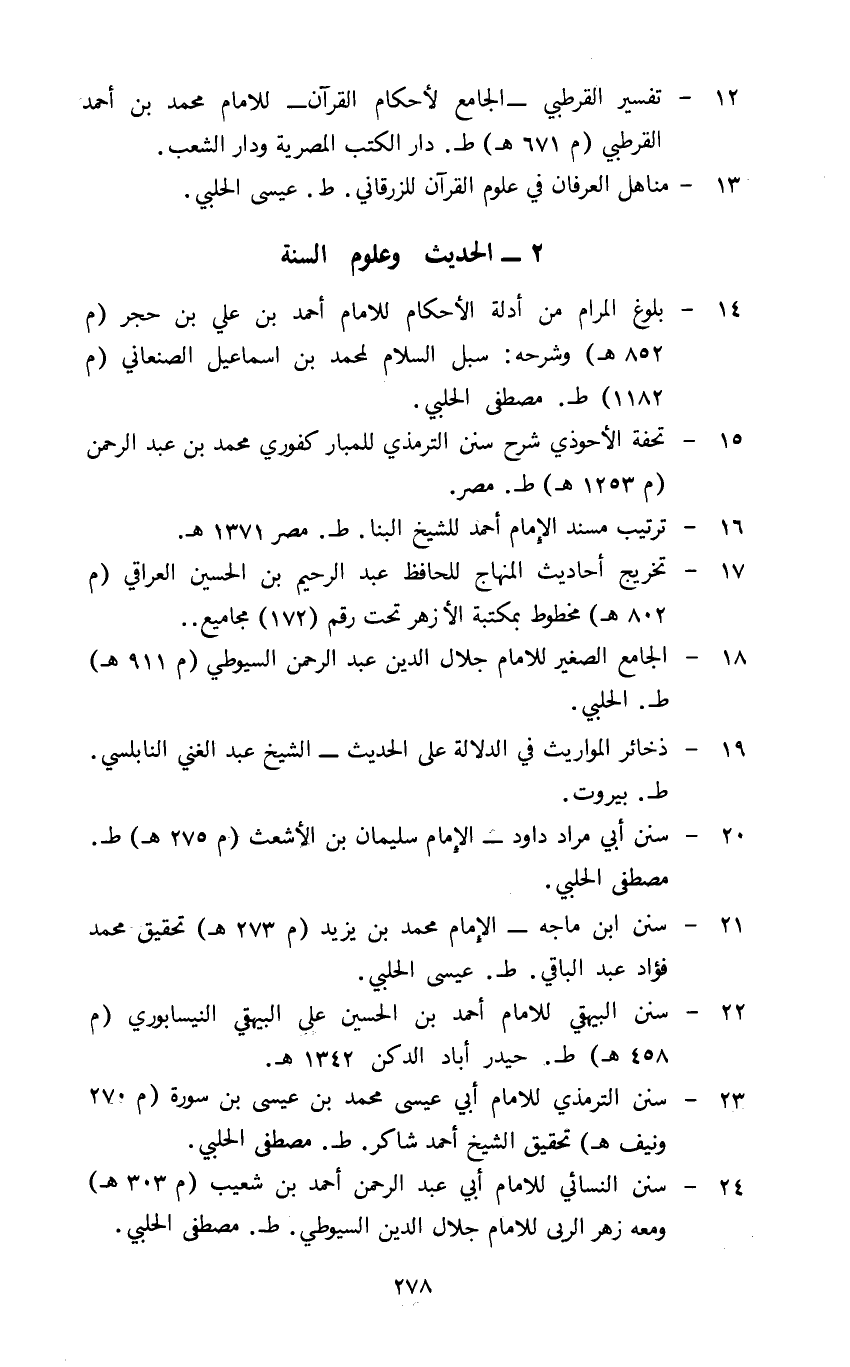 ١٢ - تفسير القرطبي —الجامع لأحكام القرآن— للامام محمد بن أحمد
القرطبي (م ٦٧١ هـ) ط. دار الكتب المصرية ودار الشعب.
١٣ - مناهل العرفان في علوم القرآن للزرقاني. ط. عيسى الحلبي.
٢ — الحديث وعلوم السنة
١٤ - بلوغ المرام من أدلة الأحكام للامام أحمد بن علي بن حجر (م
٨٥٢ هـ) وشرحه: سبل السلام لمحمد بن اسماعيل الصنعاني (م
١١٨٢) ط. مصطفى الحلبي.
١٥ - تحفة الأحوذي شرح سنن الترمذي للمبار كفوري محمد بن عبد الرحمن
(م ١٢٥٣ هـ) ط. مصر.
١٦ - ترتيب مسند الإمام أحمد للشيخ البنا. ط. مصر ١٣٧١ هـ.
١٧ - تخريج أحاديث المنهاج للحافظ عبد الرحيم بن الحسين العراقي (م
٨٠٢ هـ) مخطوط بمكتبة الأزهر تحت رقم (١٧٢) مجاميع..
١٨ - الجامع الصغير للامام جلال الدين عبد الرحمن السيوطي (م ٩١١ هـ)
ط. الحلبي.
١٩ - ذخائر المواريث في الدلالة على الحديث — الشيخ عبد الغني النابلسي.
ط. بيروت.
٢٠ - سنن أبي مراد داود — الإمام سليمان بن الأشعث (م ٢٧٥ هـ) ط.
مصطفى الحلبي.
٢١ - سنن ابن ماجه — الإمام محمد بن يزيد (م ٢٧٣ هـ) تحقيق محمد
فؤاد عبد الباقي. ط. عيسى الحلبي.
٢٢ - سنن البيهقي للامام أحمد بن الحسين علي البيهقي النيسابوري (م
٤٥٨ هـ) ط. حيدر أباد الدكن ١٣٤٢ هـ.
٢٣ - سنن الترمذي للامام أبي عيسى محمد بن عيسى بن سورة (م ٢٧٠
ونيف هـ) تحقيق الشيخ أحمد شاكر. ط. مصطفى الحلبي.
٢٤ - سنن النسائي للامام أبي عبد الرحمن أحمد بن شعيب (م ٣٠٣ هـ)
ومعه زهر الربى للامام جلال الدين السيوطي. ط. مصطفى الحلبي.
٢٧٨